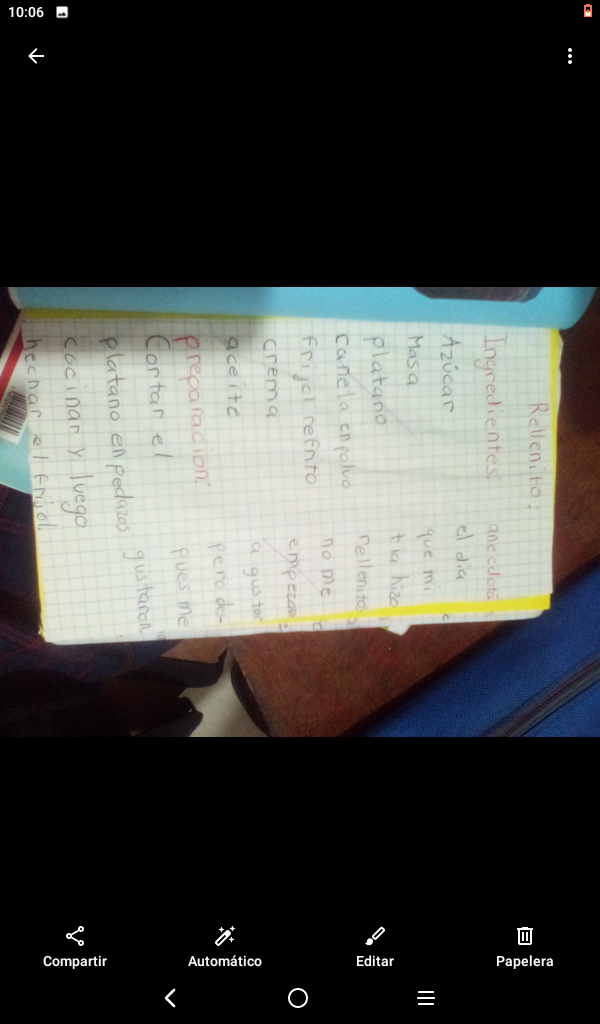 10:06
Rellenito:
Ingredientes
Azúcar
Masa
platano
canela en polvo
frijol refrito
crema
aceite
preparacion:
Cortar el
platano en pedazos
cocinar y luego
hechar el frijol
anecdota
el dia
que mi
tia hizo
rellenitos
no me
empezaron
a gustar
pero des-
pues me
gustaron.
Compartir
Automático
Editar
Papelera